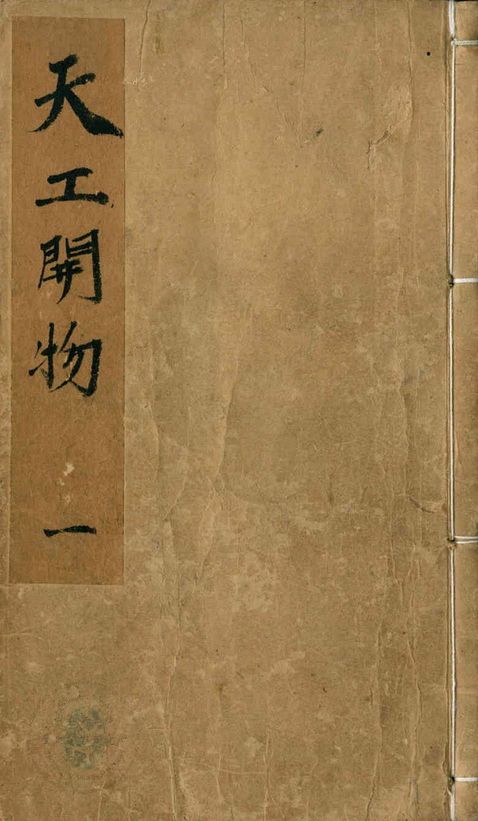 天工開物 一